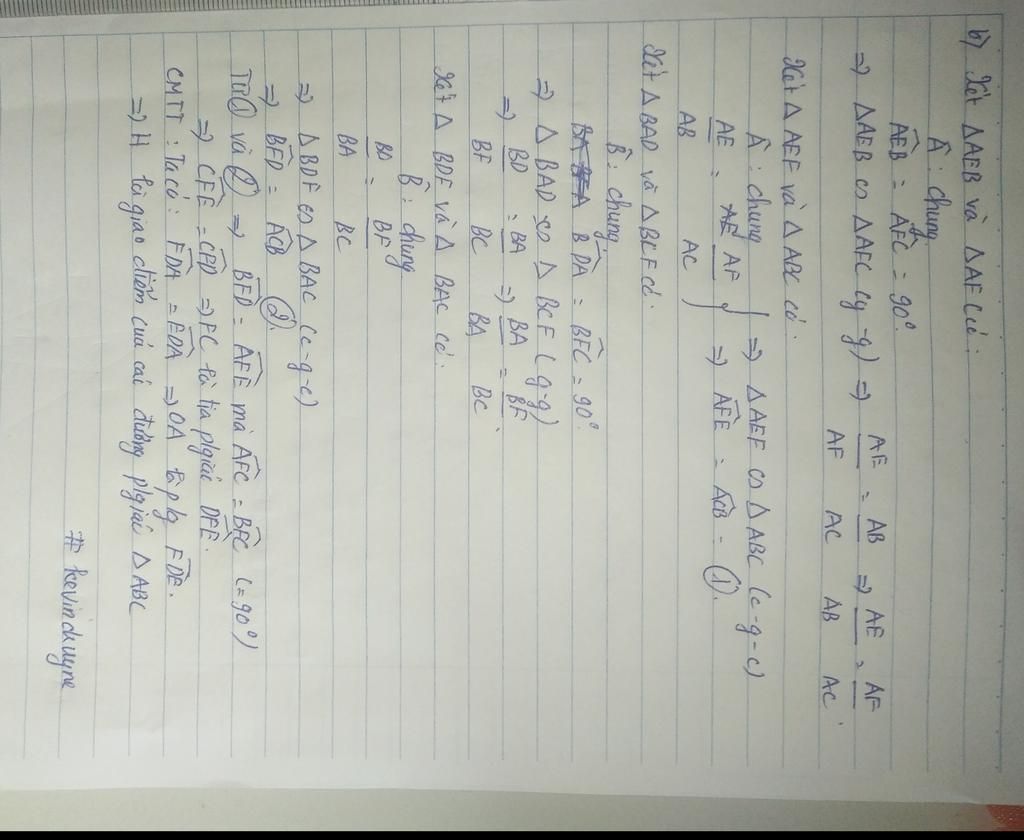 b) Xét ΔAEB và ΔAFC có:
Â: chung
AEB = AFC = 90°
=> ΔAEB ∽ ΔAFC (g-g) => AE/AF = AB/AC => AE/AB = AF/AC.
Xét ΔAEF và ΔABC có:
Â: chung
AE/AB = AF/AC } => ΔAEF ∽ ΔABC (c-g-c)
=> AFE = ACB - (1).
Xét ΔBAD và ΔBCF có:
B̂: chung
BDA = BFC = 90°
=> ΔBAD ∽ ΔBCF (g-g)
=> BD/BF = BA/BC => BA/BA = BF/BC.
Xét ΔBDF và ΔBAC có:
B̂: chung
BD/BA = BF/BC
=> ΔBDF ∽ ΔBAC (c-g-c)
=> BFD = ACB (2).
Từ (1) và (2) => BFD = AFE mà AFC = BFC (=90°)
=> CFE = CFD => FC là tia pgiác DFE.
CMTT: Ta có: FDA = EDA => DA là pg FDE.
=> H là giao điểm của các đường pgiác ΔABC
# kevinduyne